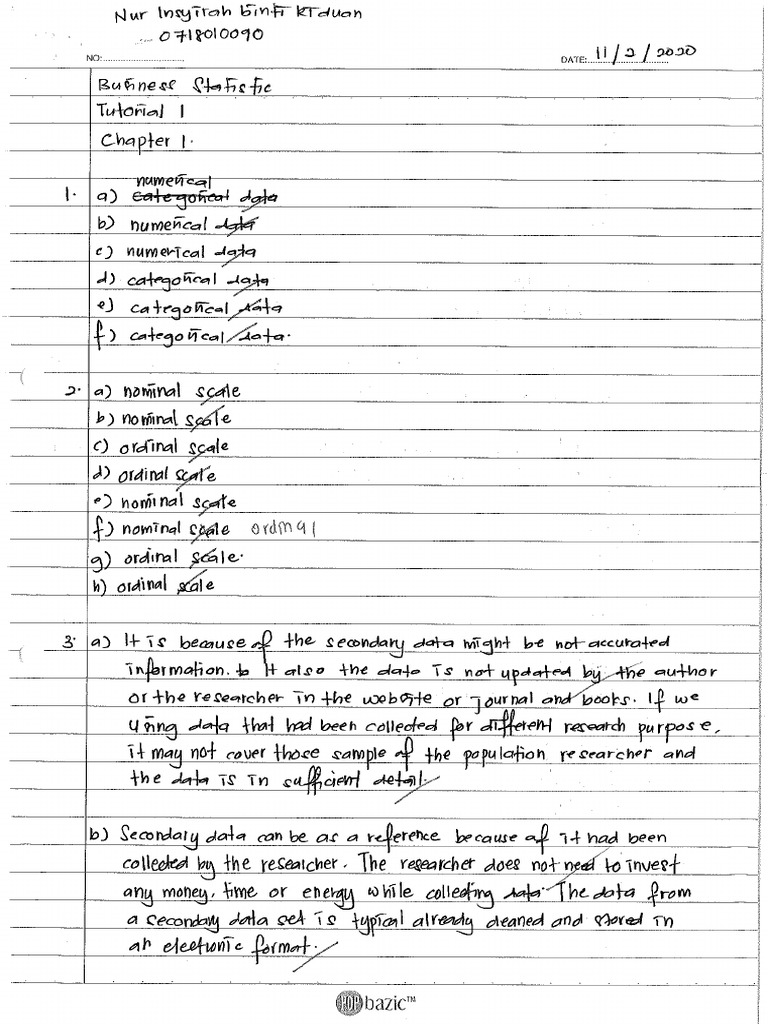 Nur Insyirah binti Riduan
0718010090
NO:
DATE: 11/2/2020
Business Statistic
Tutorial 1
Chapter 1.
numerical
1. a) categorical data
b) numerical data
c) numerical data
d) categorical data
e) categorical data
f) categorical data.
2. a) nominal scale
b) nominal scale
c) ordinal scale
d) ordinal scale
e) nominal scale
f) nominal scale ordinal
g) ordinal scale.
h) ordinal scale
3. a) It is because of the secondary data might be not accurated
information. It also the data is not updated by the author
or the researcher in the website or journal and books. If we
using data that had been collected for different research purpose,
it may not cover those sample of the population researcher and
the data is in sufficient detail.
b) Secondary data can be as a reference because of it had been
collected by the researcher. The researcher does not need to invest
any money, time or energy while collecting data. The data from
a secondary data set is typical already cleaned and stored in
an electronic format.
POP bazic™